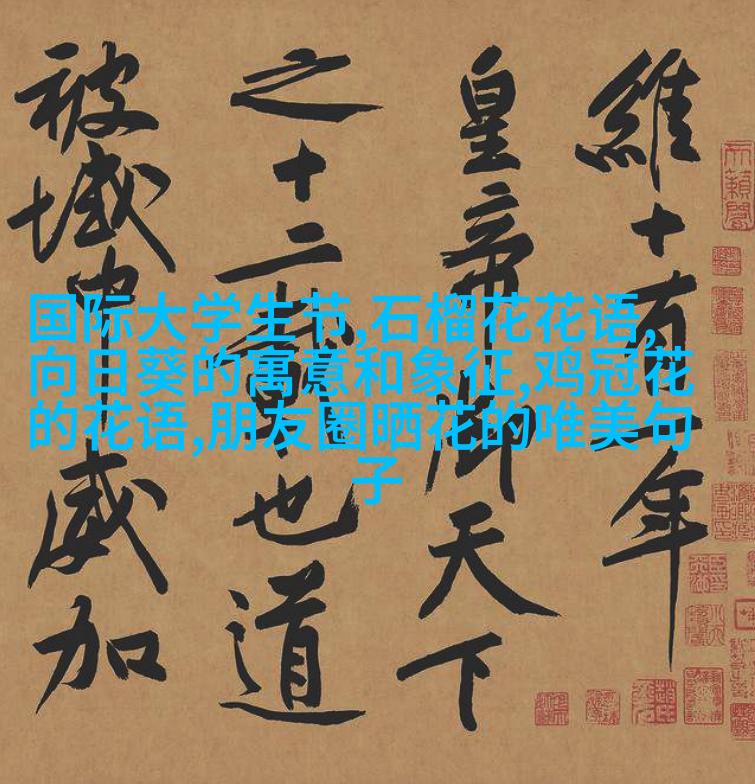 維十有一年
皇帝御天下
之十二載也道
被域中威加
国际大学生节,石榴花花语,
向日葵的寓意和象征,鸡冠花
的花语,朋友圈晒花的唯美句
子